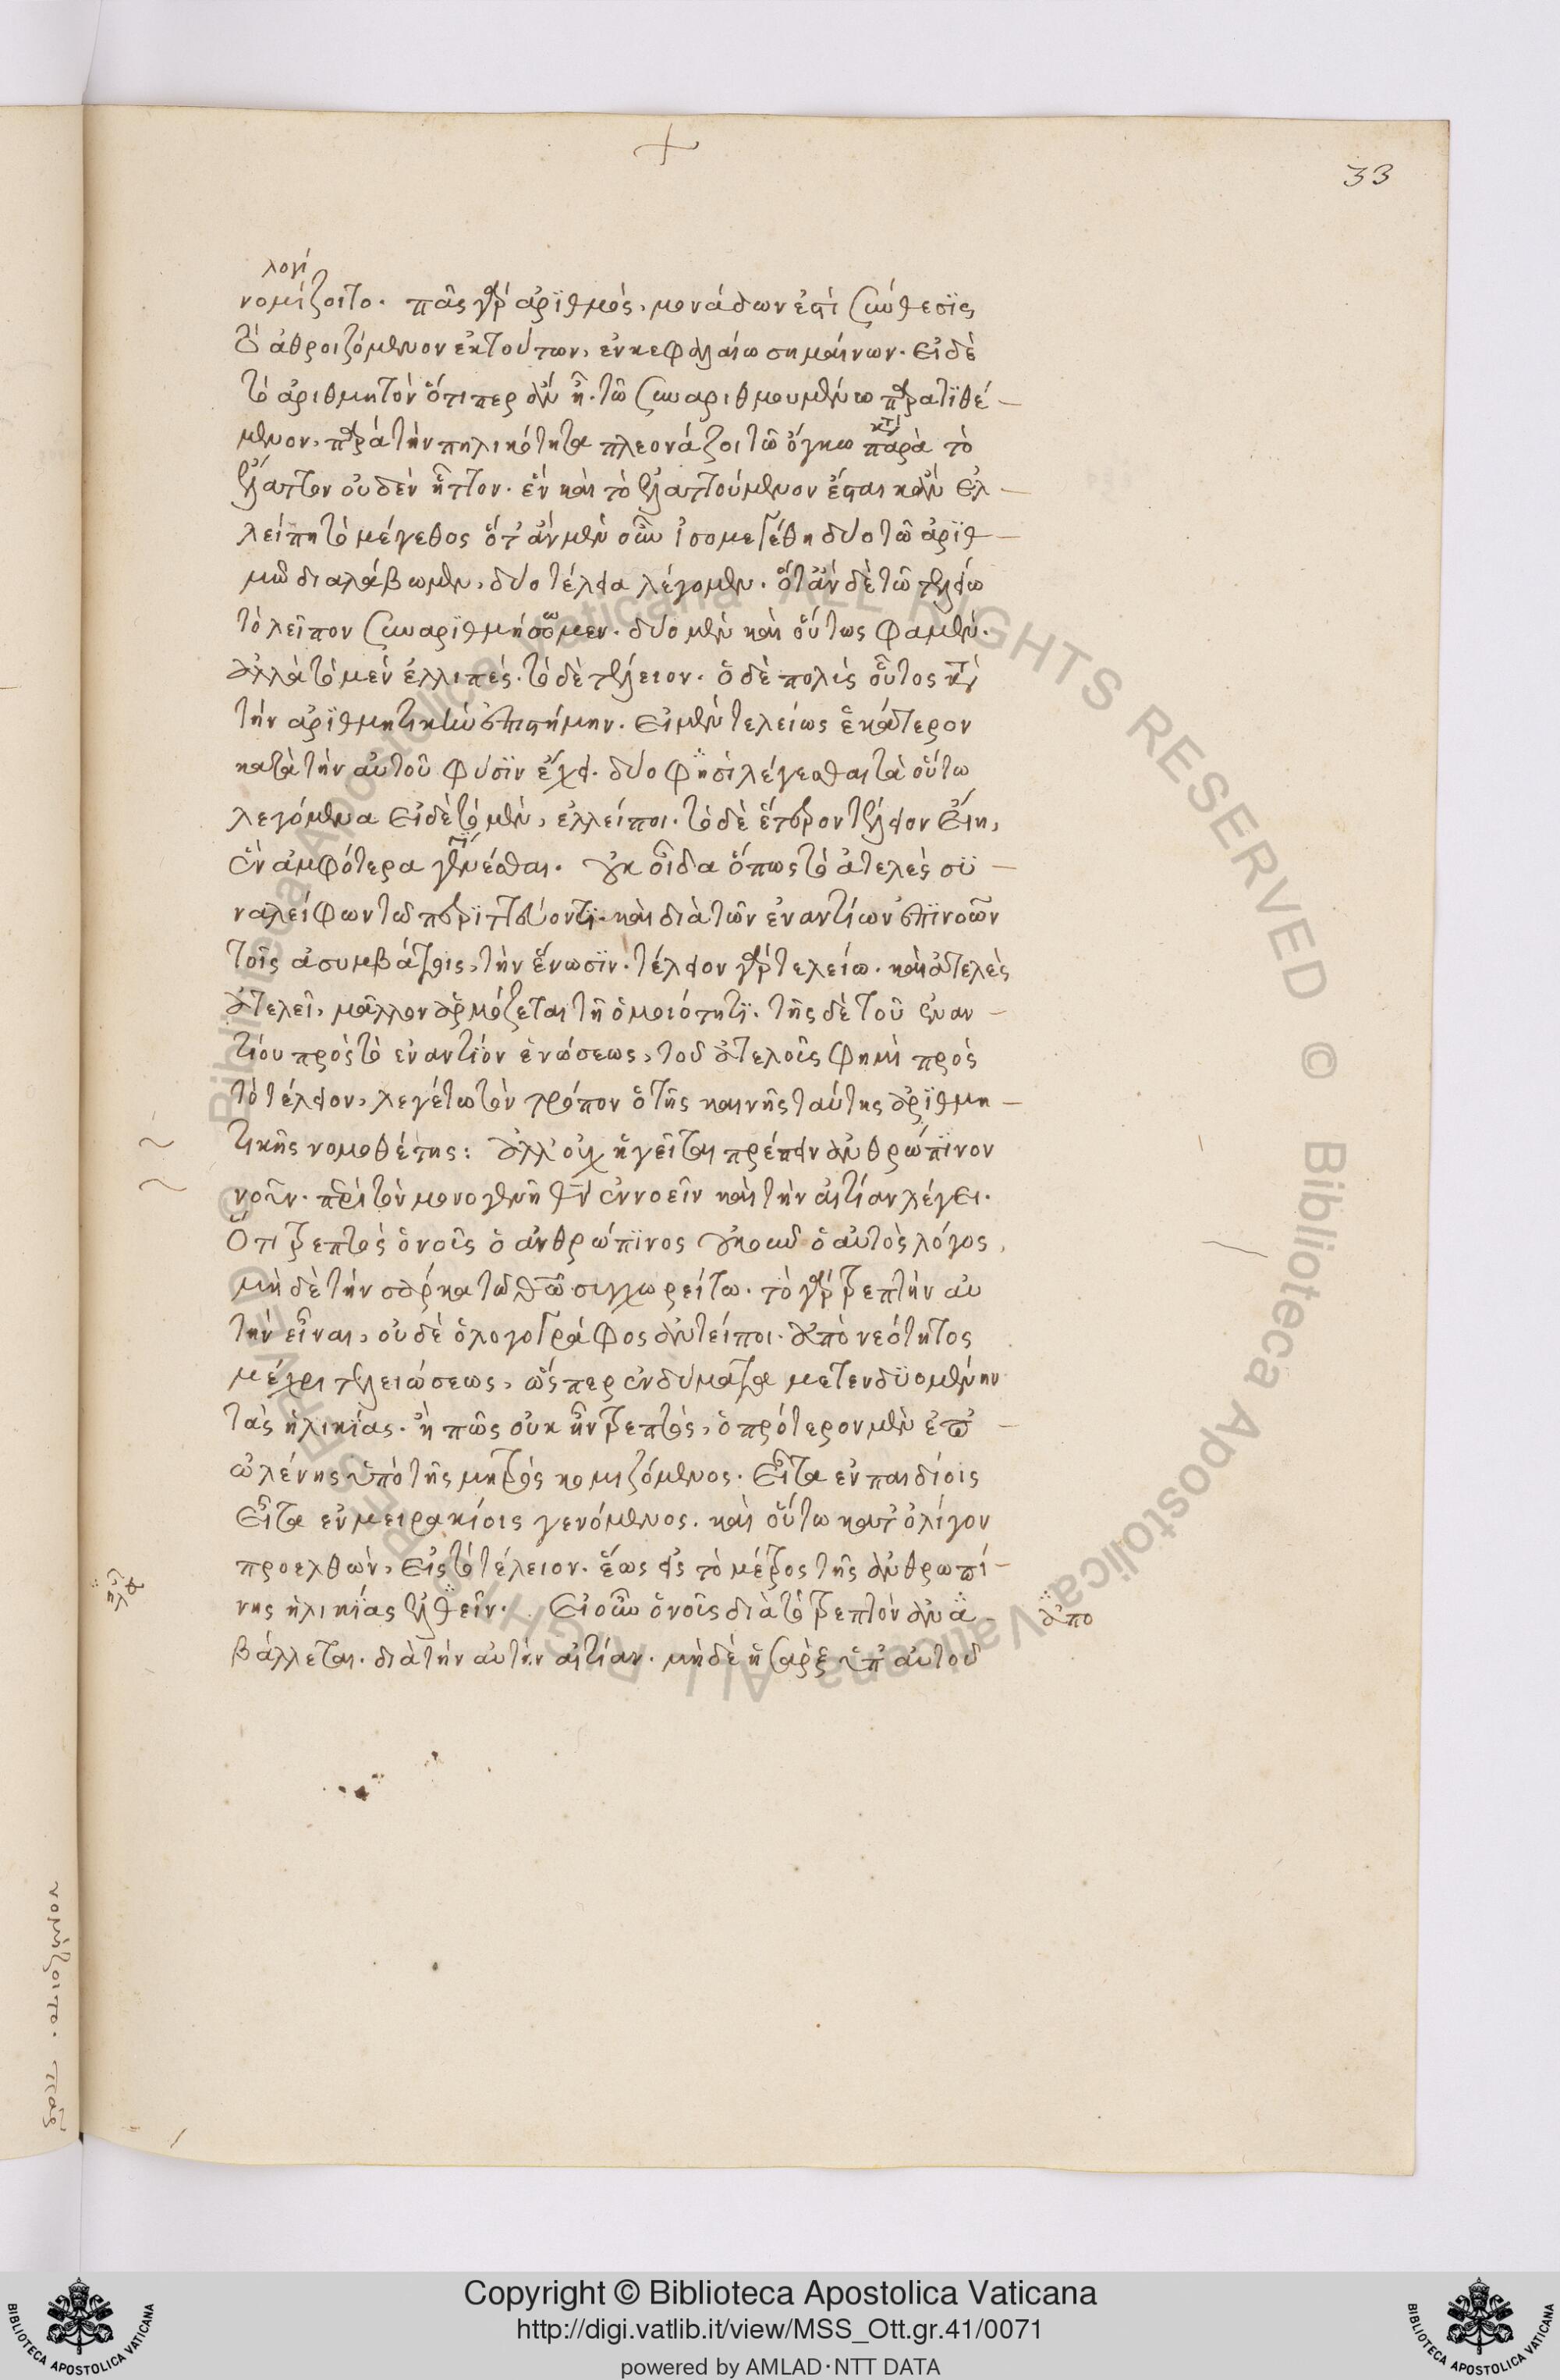 33
λογί
νομίζοιτο. πᾶς γὰρ ἀρϊθμὸς, μονάδων ἐστὶ σύνθεσϊς
τὸ ἀθροιζόμενον ἐκ τούτων, ἐν κεφαλαίω σημαίνων. Εἰ δὲ
τὸ ἀριθμητὸν ὅτι περ ἂν ἦ. τῶ συναριθμουμένω παρατϊθέ-
μενον, παρὰ τὴν πηλικότητα πλεονάζοι τῶ ὄγκω παρὰ τὸ
κτ
ἔλαττον οὐδὲν ἧττον. ἓν καὶ τὸ ἐλαττούμενον ἔσται κἂν ἐλ-
λείπη τὸ μέγεθος ὅτ' ἂν μὲν οὖν ἰσομεγέθη δύο τῶ ἀρϊθ-
μῶ διαλάβωμεν, δύο τέλεια λέγομεν. ὅταν δὲ τῶ τελείω
τὸ λεῖπον συναρϊθμήσωμεν. δύο μὲν καὶ οὕτως φαμὲν.
ἀλλὰ τὸ μὲν ἐλλιπὲς. τὸ δὲ τέλειον. ὁ δὲ πολὶς οὗτος κατὰ
τὴν ἀρϊθμητικὴν ἐπιστήμην. Εἰ μὲν τελείως ἑκάτερον
κατὰ τὴν αὐτοῦ φύσϊν ἔχει. δύο φησὶ λέγεσθαι τὰ οὕτω
λεγόμενα εἰ δὲ τὸ μὲν, ἐλλείποι. τὸ δὲ ἕτερον τέλειον εἴη,
ἓν ἀμφότερα γενέσθαι. οὐκ οἶδα ὅπως τὸ ἀτελὲς σϋ-
ναλείφων τῶ περϊττεύοντϊ. καὶ διὰ τῶν ἐναντίων ἐπϊνοῶν
τοῖς ἀσυμβάτοις, τὴν ἕνωσϊν. τέλειον γὰρ τελείω. καὶ ἀτελὲς
ἀτελεῖ, μᾶλλον ἁρμόζεται τῆ ὁμοιότητϊ. τῆς δὲ τοῦ ἐναν-
τίου πρὸς τὸ ἐναντίον ἑνώσεως, τοῦ ἀτελοῦς φημὶ πρὸς
τὸ τέλειον, λεγέτω τὸν τρόπον ὁ τῆς καινῆς ταύτης ἀρϊθμη-
τικῆς νομοθέτης: ἀλλ' οὐχ ἡγεῖται πρέπειν ἀνθρώπϊνον
νοῦν. περὶ τὸν μονογενῆ θν̄ ἐννοεῖν καὶ τὴν αἰτίαν λέγει.
Ὅτι τρεπτὸς ὁ νοῦς ὁ ἀνθρώπϊνος οὐκοῦν ὁ αὐτὸς λόγος,
μὴ δὲ τὴν σάρκα τῶ θεῶ συγχωρείτω. τὸ γὰρ τρεπτὴν αὐ
τὴν εἶναι, οὐδὲ ὁ λογογράφος ἀντείποι. ἀπὸ νεότητος
μέχρι τελειώσεως, ὥσπερ ἐνδύματα μετενδϋομένην
τὰς ἡλικίας. ἢ πῶς οὐκ ἦν τρεπτὸς, ὁ πρότερον μὲν ἐπ' -
ὠλένης ὑπὸ τῆς μητρὸς κομιζόμενος. Εἶτα ἐν παιδίοις
Εἶτα ἐν μειρακίοις γενόμενος. καὶ οὕτω κατ' ὀλίγον
προελθὼν, εἰς τὸ τέλειον. ἕως εἰς τὸ μέτρος τῆς ἀνθρωπί-
νης ἡλικίας ἐλθεῖν. Εἰ οὖν ὁ νοῦς διὰ τὸ τρεπτὸν ἀνα-
ἀπο
βάλλεται. διὰ τὴν αὐτὴν αἰτίαν. μὴ δὲ ἡ σὰρξ ὑπ' αὐτοῦ
νομίζοιτο. πᾶς
Copyright © Biblioteca Apostolica Vaticana
http://digi.vatlib.it/view/MSS_Ott.gr.41/0071
powered by AMLAD·NTT DATA